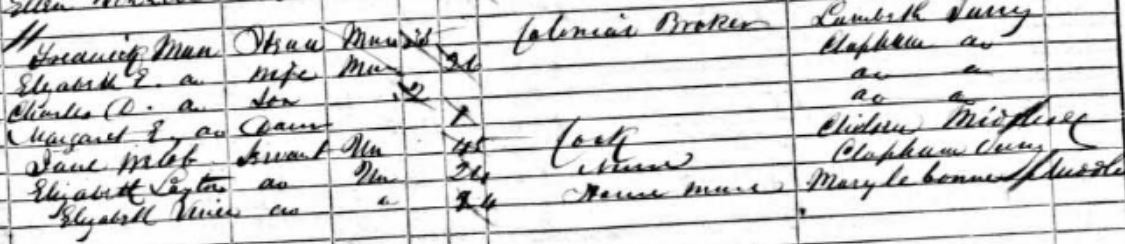 Frederick Man Head Mar 28 Colonial Broker Lambeth Surry
Elizabeth E. do Wife Mar 26 Clapham do
Charles D. do Son 2 do do
Margaret E. do Daur 1 do do
Jane Webb Servant Un 45 Cook Chelsea Middlesex
Elizabeth Layton do Un 24 Nurse Clapham Surry
Elizabeth do " 24 House Maid Marylebonne